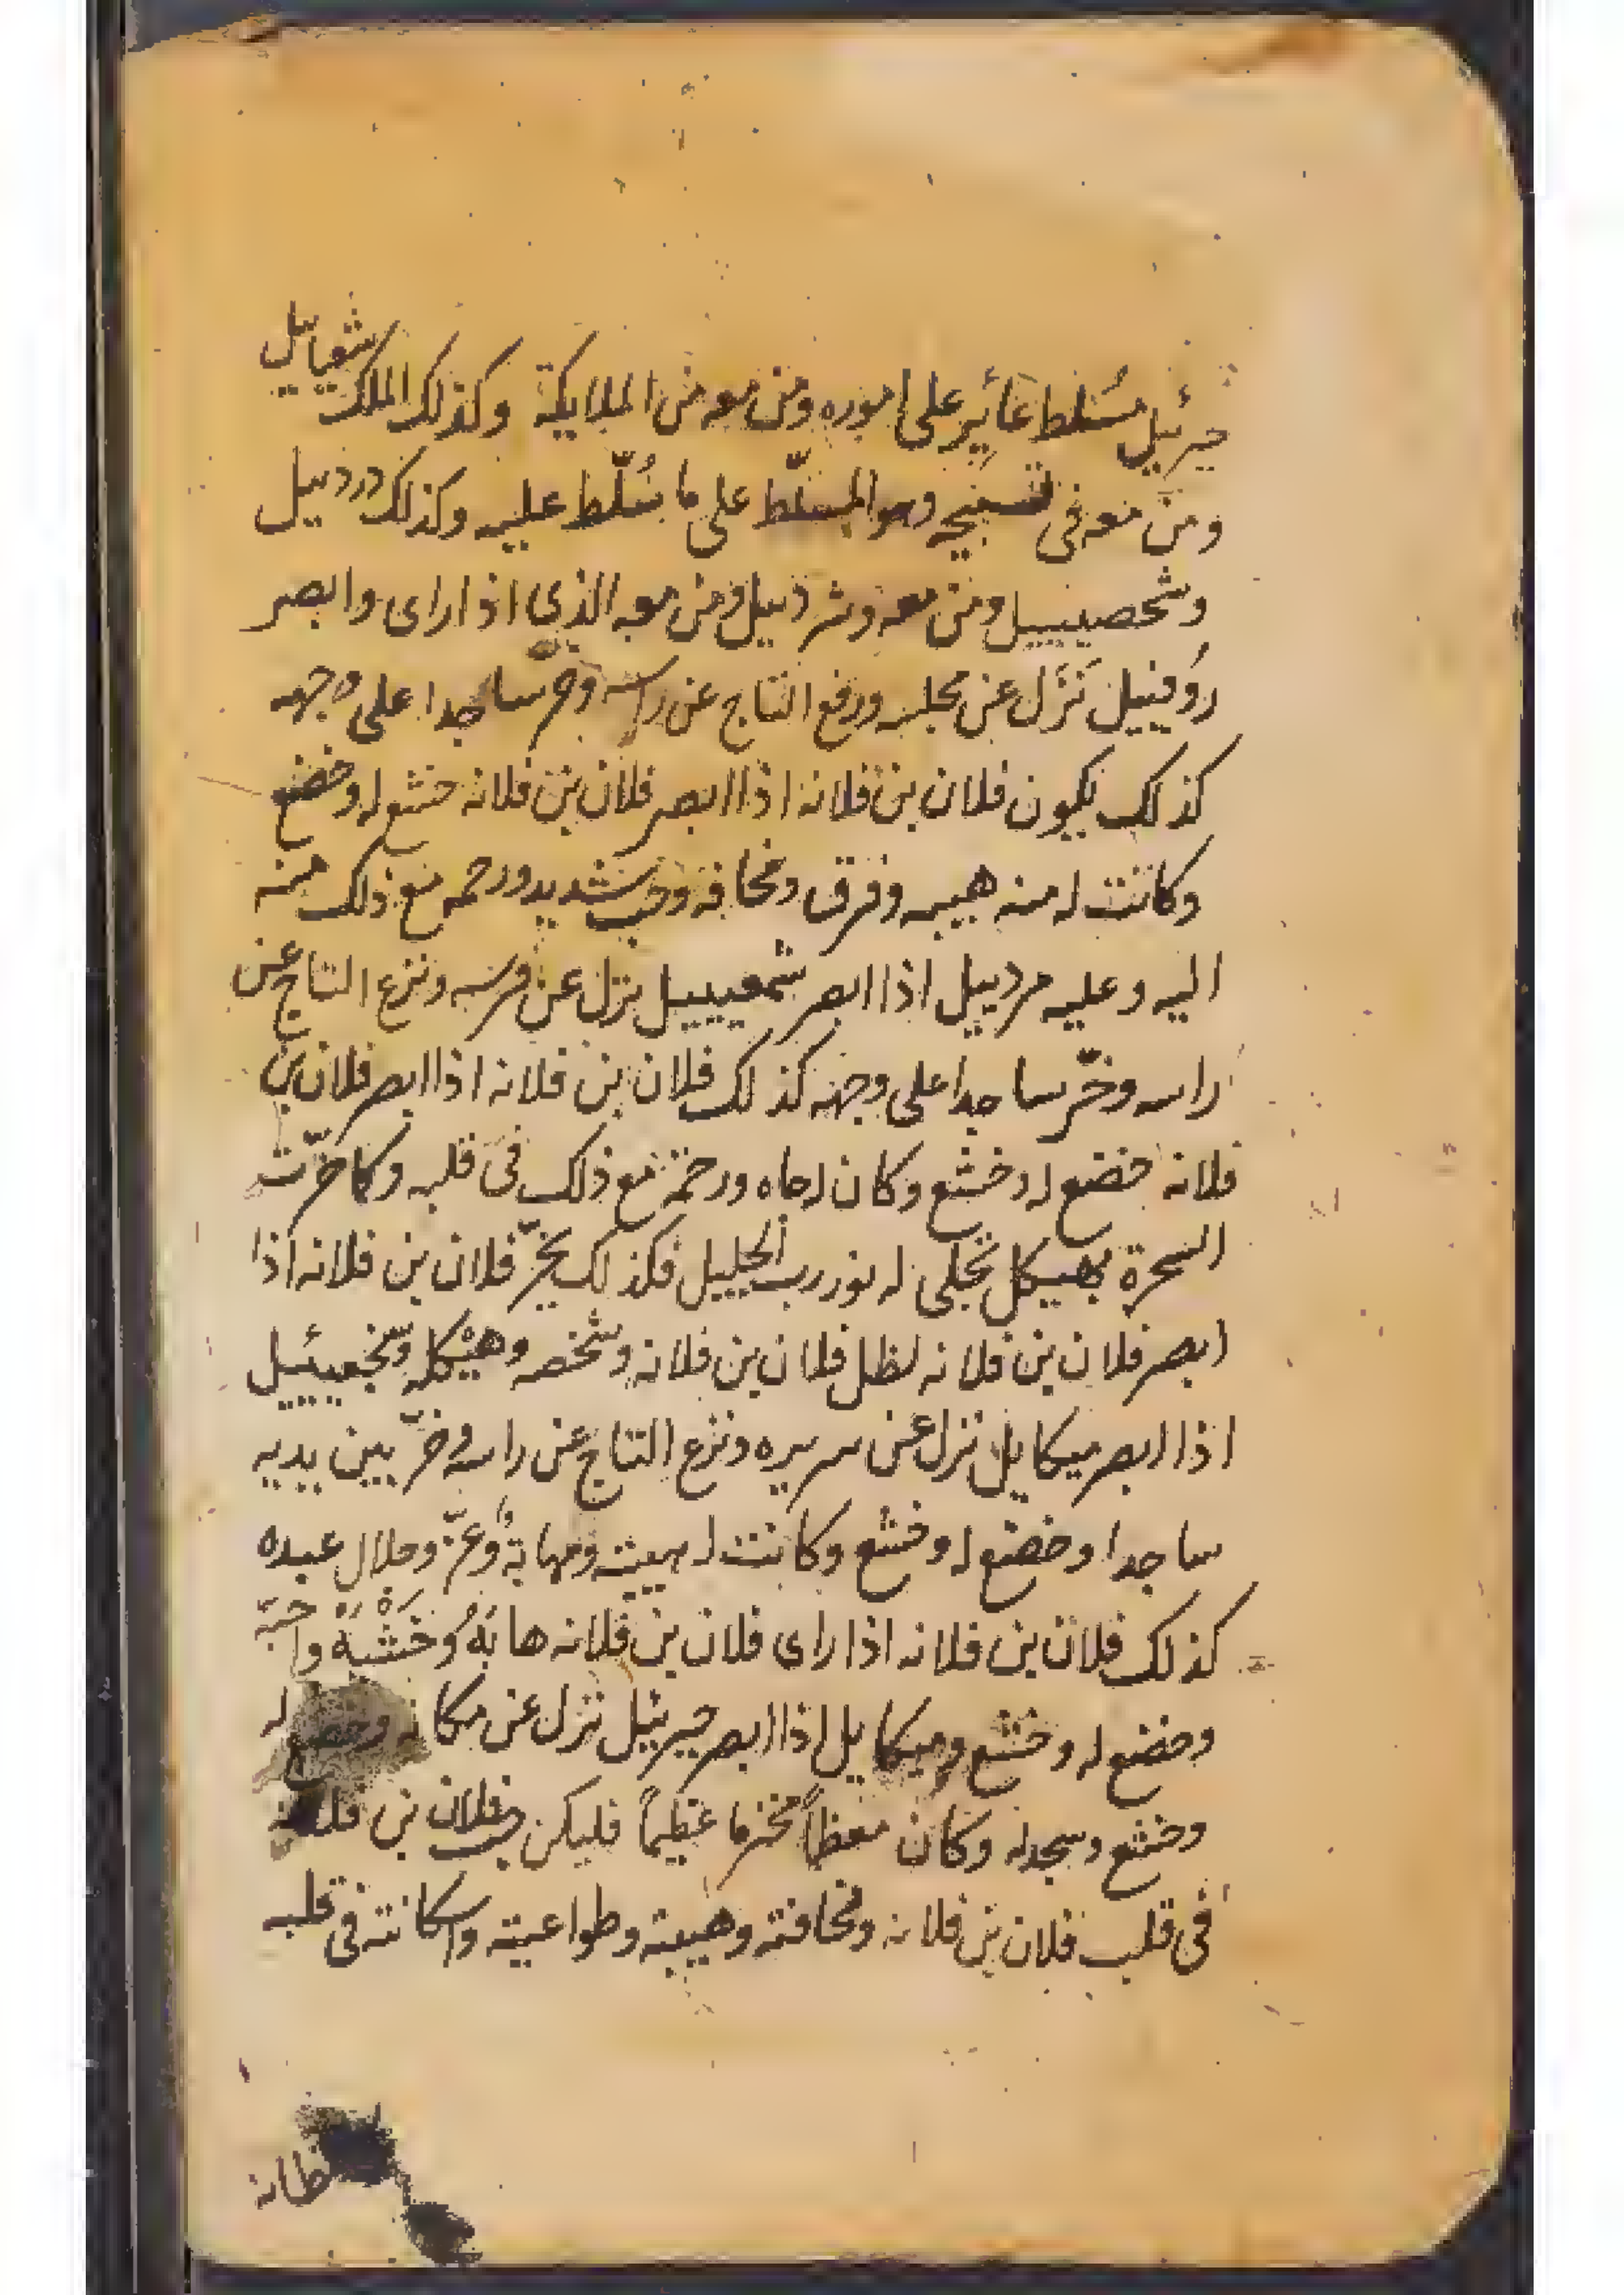 جبرئيل مسُلط غائير على اموره ومن معه من الملايكة وكذلك الملك شعيائيل
ومن معه فى تسبيحه وهو المسلّط على ما سُلّط عليه وكذلك درديل
وشخصيييل ومن معه وشرديل ومن معه الذى اذا راى وابصر
روفييل نزل عن مجلسه ورفع التاج عن راسه وخرّ ساجدا على وجهه
كذلك يكون فلان بن فلانه اذا ابصر فلان بن فلانه خشع له وخضع
وكانت له منه هيبه وفرق ومخافه وحب شديد ورحمه مع ذلك منه
اليه وعليه مردييل اذا ابصر شمعيييل نزل عن فرسه ونزع التاج عن
راسه وخرّ ساجدا على وجهه كذلك فلان بن فلانه اذا ابصر فلان بن
فلانه خضع له وخشع وكان له جاه ورحمة مع ذلك فى قلبه وكما خرّت
السحرة بهيكل تجلى له نور رب الجليل فكذلك يخرّ فلان بن فلانه اذا
ابصر فلان بن فلانه لظل فلان بن فلانه وشخصه وهيكله
اذا ابصر ميكايل نزل عن سريره ونزع التاج عن راسه وخرّ بين يديه
ساجدا وخضع له وخشع وكانت له هيبة ومهابة وعزّ وجلال عبده
كذلك فلان بن فلانه اذا راى فلان بن فلانه هابَهُ وخشيه واحبّه
وخضع له وخشع وميكايل اذا ابصر جبرئيل نزل عن مكانه وخضع له
وخشع وسجد له وكان معظماً عظيماً فليكن حب فلان بن فلانه
فى قلب فلان بن فلانه ومخافته وهيبته وطواعيته واسكانته فى قلبه